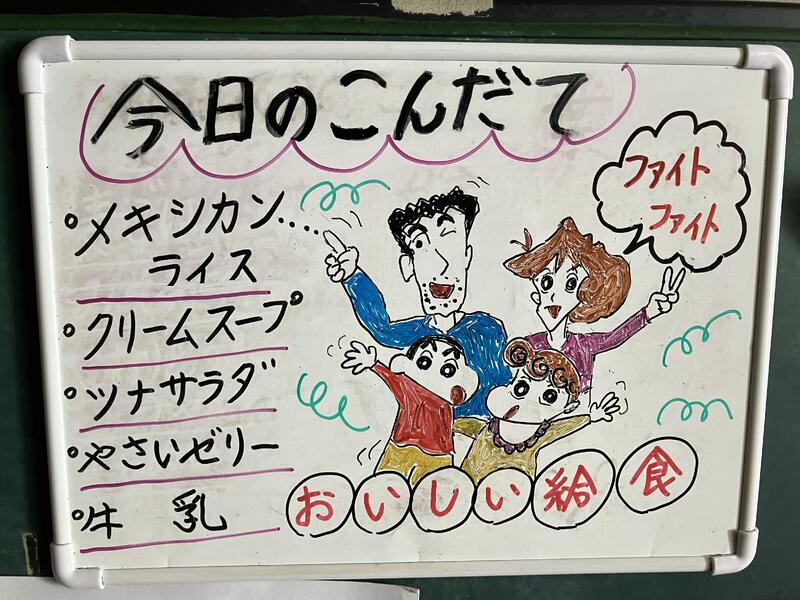 今日のこんだて
ファイト
ファイト
メキシカン....
ライス
クリームスープ
ツナサラダ
やさいゼリー
牛乳
おいしい給食